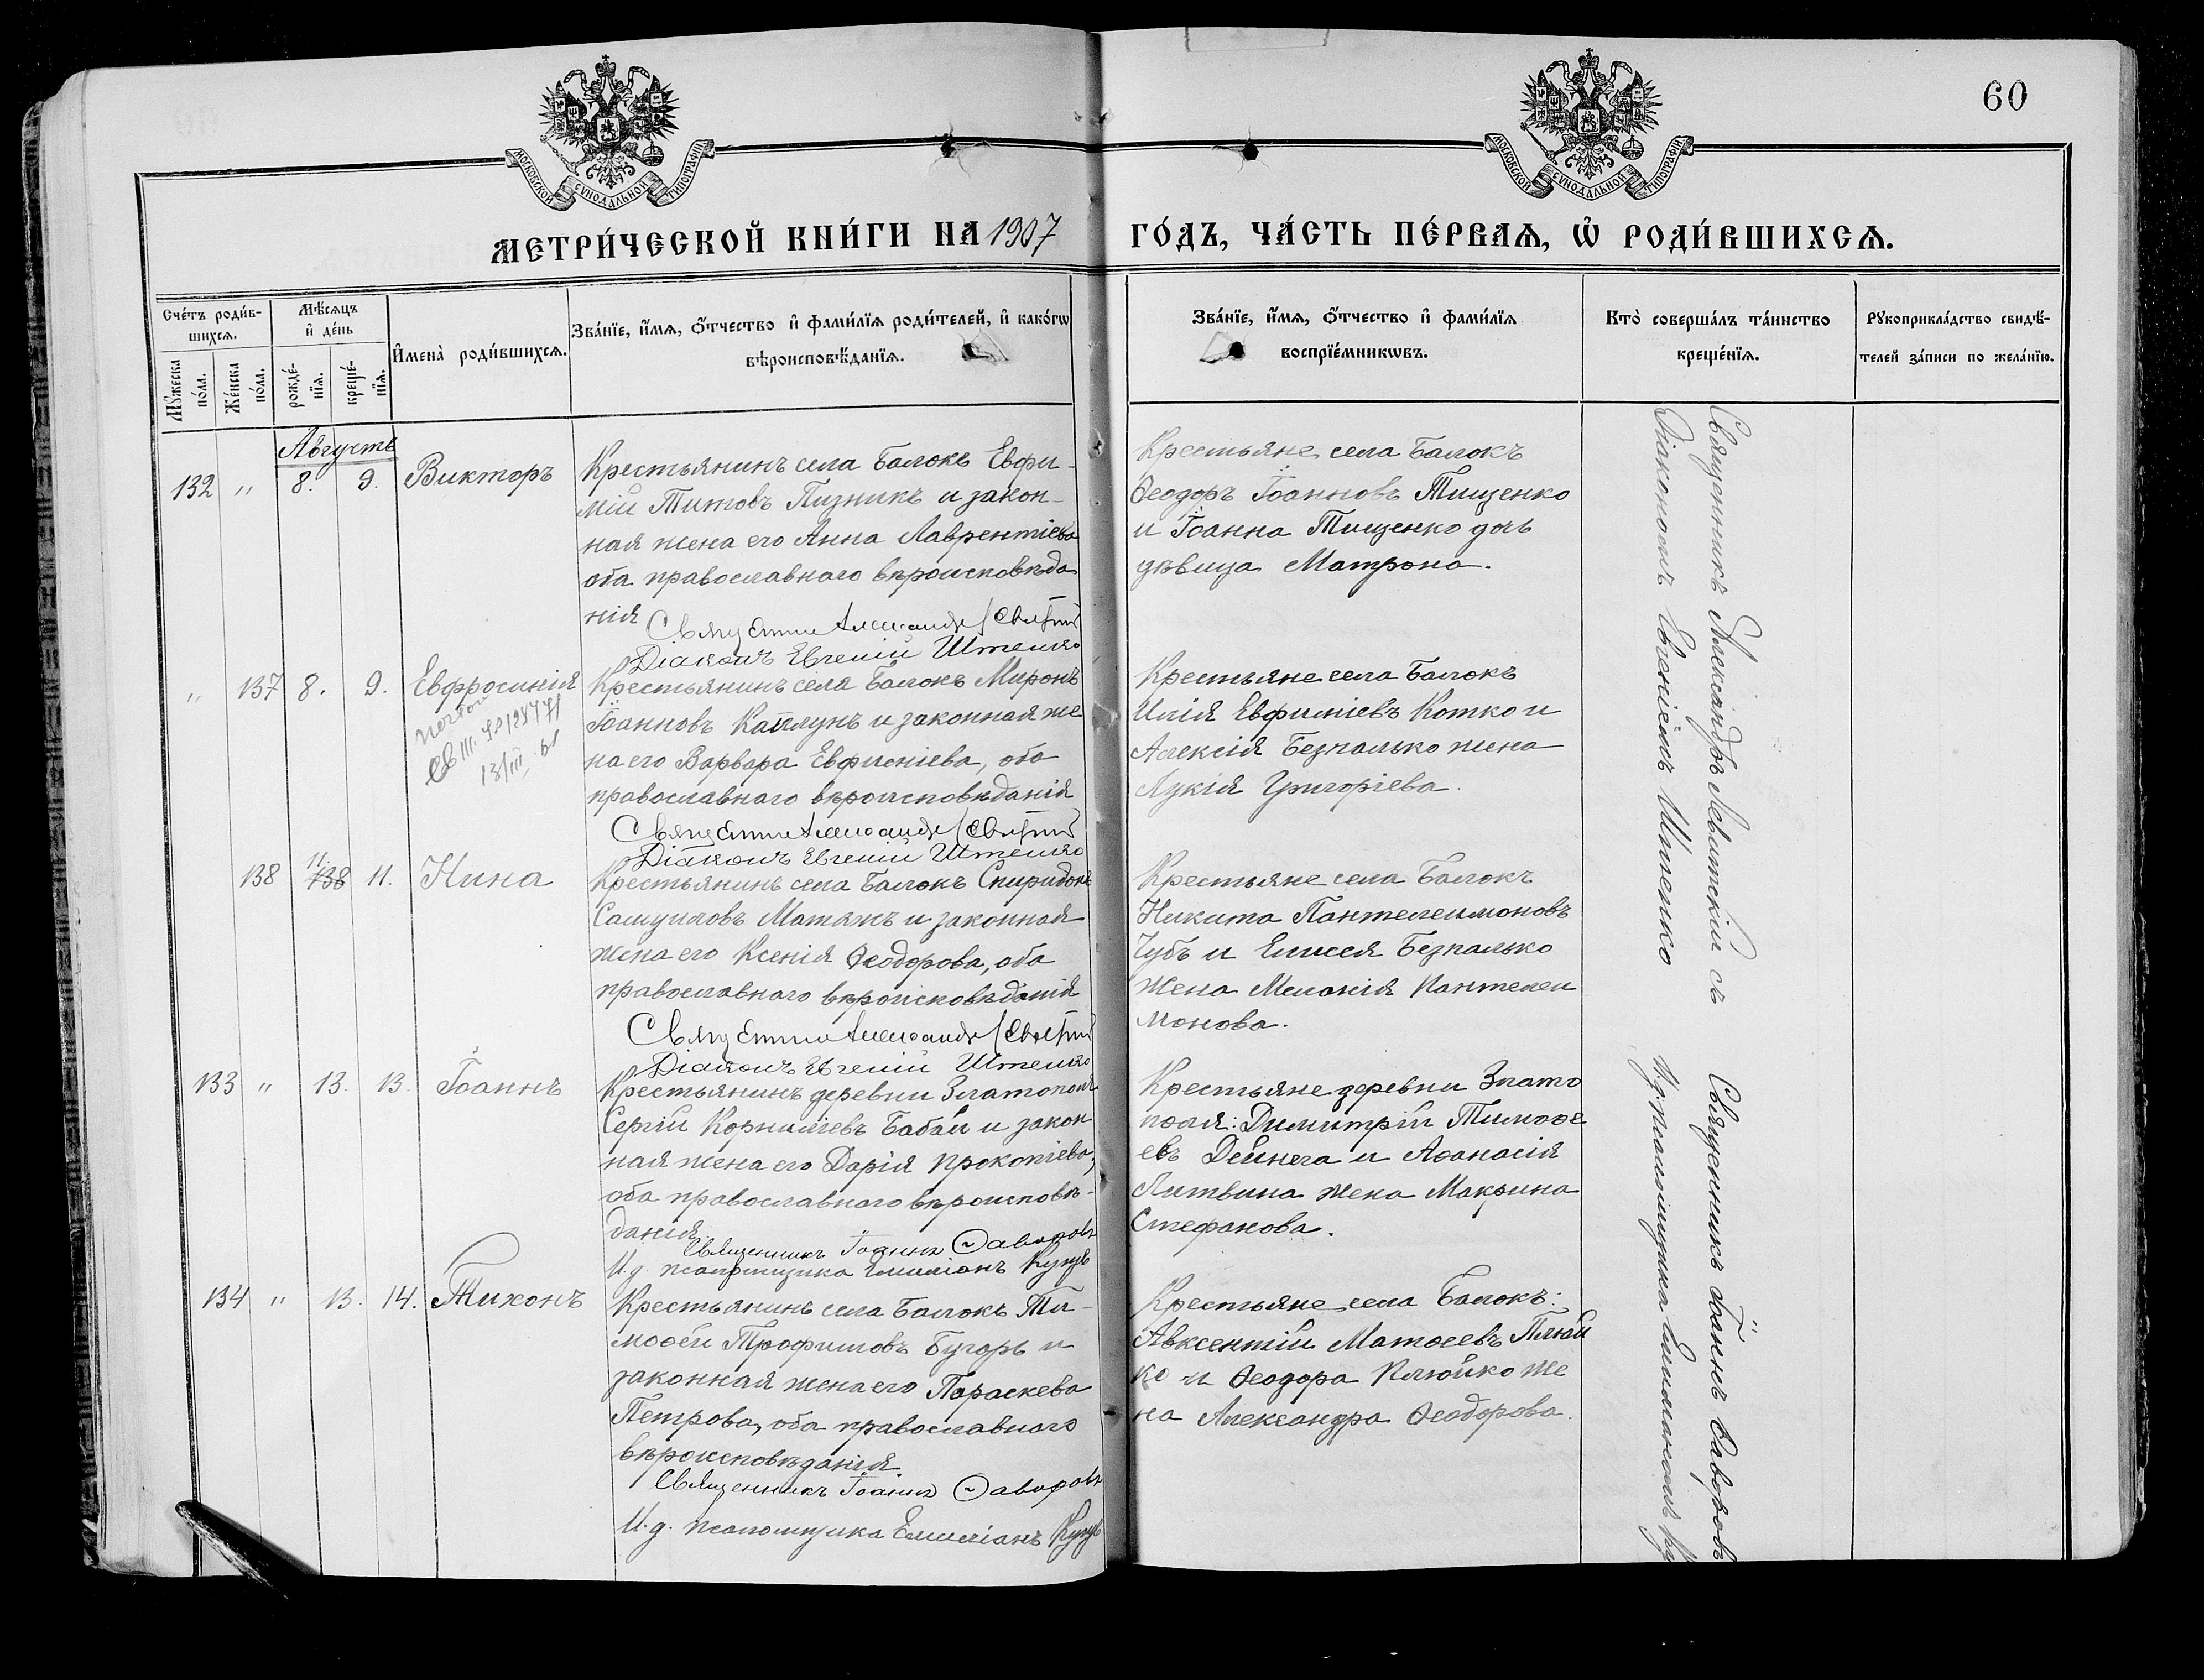 60
МОСКОВСКОЙ СѴНОДАЛЬНОЙ ТИПОГРАФІИ
МОСКОВСКОЙ СѴНОДАЛЬНОЙ ТИПОГРАФІИ
МЕТРИ́ЧЕСКОЙ КНИ́ГИ НА 1907 ГО́ДЪ, ЧА́СТЬ ПЕ́РВАѦ, Ѡ РОДИ́ВШИХСѦ.
Сче́тъ роди́в-
шихсѧ.
Мꙋ́жеска
по́ла.
Же́нска
по́ла.
Мѣ́сѧцъ
и҆ де́нь
рожде́-
нїѧ.
креще́-
нїѧ.
И҆мена̀ роди́вшихсѧ.
Зва́нїе, и҆́мѧ, ѻ҆́тчество и҆ фами́лїѧ роди́телей, и҆ како́гѡ
вѣроисповѣ́данїѧ.
Зва́нїе, и҆́мѧ, ѻ҆́тчество и҆ фами́лїѧ
воспрїе́мникѡвъ.
Кто̀ соверша́лъ та́инство
креще́нїѧ.
Рꙋкоприкла́дство свидѣ́-
телей за́писи по жела́нїю.
Августъ
132 " 8. 9. Викторъ
Крестьянинъ села Балокъ Евфи-
мій Титовъ Пизникъ и закон-
ная жена его Анна Лаврентіева
оба православнаго вѣроисповѣда
нія
Священникъ Александръ Левитскій
Діаконъ Евгеній Штепенко
Крестьяне села Балокъ
Ѳеодоръ Іоанновъ Тищенко
и Іоанна Тищенко дочь
дѣвица Матрона.
" 137 8. 9. Евфросинія
13/III
Крестьянинъ села Балокъ Миронъ
Іоанновъ Каплунъ и законная же
на его Варвара Евфиміева, оба
православнаго вѣроисповѣданія
Священникъ Александръ Левитскій
Діаконъ Евгеній Штепенко
Крестьяне села Балокъ
Илія Евфиміевъ Котко и
Алексія Безпалько жена
Лукія Григоріева.
138 11. 138 11. Нина
Крестьянинъ села Балокъ Спиридонъ
Самуиловъ Матяжъ и законная
жена его Ксенія Ѳеодорова, оба
православнаго вѣроисповѣданія
Священникъ Александръ Левитскій
Діаконъ Евгеній Штепенко
Крестьяне села Балокъ
Никита Пантелеимоновъ
Чубъ и Елисея Безпалько
жена Меланія Пантелеи
монова.
133 " 13. 13. Іоаннъ
Крестьянинъ деревни Златополя
Сергій Корниліевъ Бабай и закон
ная жена его Дарія Прокопіева,
оба православнаго вѣроисповѣ-
данія
Священникъ Іоаннъ Ѳаворовъ
И.д. псаломщика Емиліанъ Куцъ
Крестьяне деревни Злато
поля: Димитрій Тимоѳе
евъ Дейнега и Аѳанасія
Литвина жена Макрина
Стефанова.
134 " 13. 14. Тихонъ
Крестьянинъ села Балокъ Ти-
моѳей Трофимовъ Бугоръ и
законная жена его Параскева
Петрова, оба православнаго
вѣроисповѣданія.
Священникъ Іоаннъ Ѳаворовъ
И.д. псаломщика Емиліанъ Куцъ
Крестьяне села Балокъ:
Авксентій Матѳеевъ Плюй
ко и Ѳеодора Плюйко же
на Александра Ѳеодорова.
Священникъ Александръ Левитскій съ
Діакономъ Евгеніемъ Штепенко
Священникъ Іоаннъ Ѳаворовъ
И.д. псаломщика Емиліаномъ